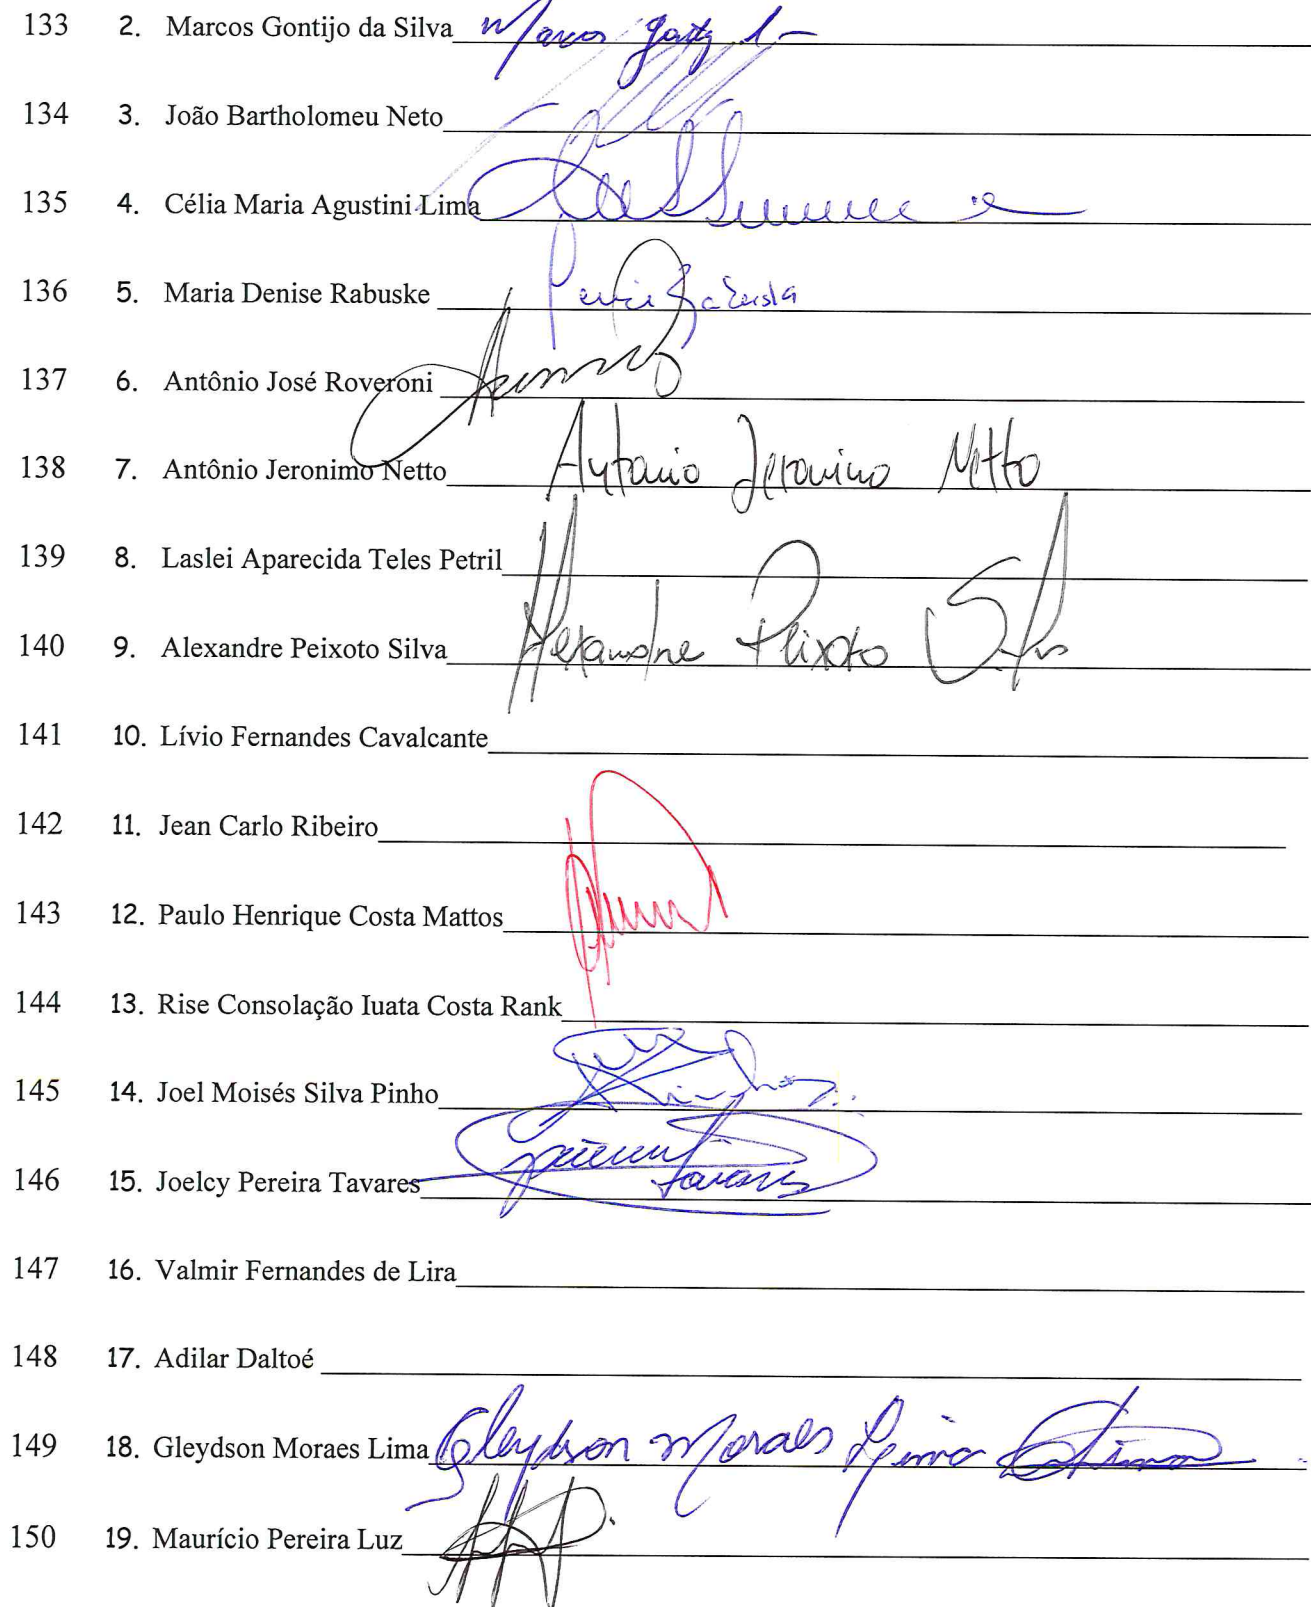 133 2. Marcos Gontijo da Silva Marcos
134 3. João Bartholomeu Neto
135 4. Célia Maria Agustini Lima
136 5. Maria Denise Rabuske
137 6. Antônio José Roveroni
138 7. Antônio Jeronimo Netto Antonio Jeronimo Netto
139 8. Laslei Aparecida Teles Petril
140 9. Alexandre Peixoto Silva Alexandre Peixoto Silva
141 10. Lívio Fernandes Cavalcante
142 11. Jean Carlo Ribeiro
143 12. Paulo Henrique Costa Mattos
144 13. Rise Consolação Iuata Costa Rank
145 14. Joel Moisés Silva Pinho
146 15. Joelcy Pereira Tavares Tavares
147 16. Valmir Fernandes de Lira
148 17. Adilar Daltoé
149 18. Gleydson Moraes Lima Gleydson Moraes Lima
150 19. Maurício Pereira Luz